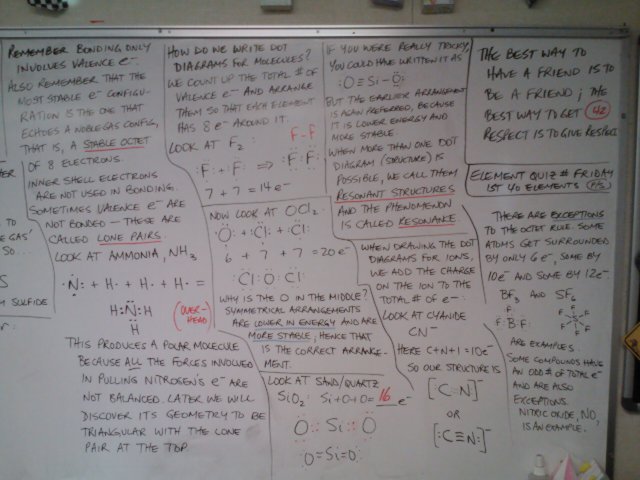 REMEMBER BONDING ONLY
INVOLVES VALENCE e⁻.
ALSO REMEMBER THAT THE
MOST STABLE e⁻ CONFIGU-
RATION IS THE ONE THAT
ECHOES A NOBLE GAS CONFIG,
THAT IS, A STABLE OCTET
OF 8 ELECTRONS.
INNER SHELL ELECTRONS
ARE NOT USED IN BONDING.
SOMETIMES VALENCE e⁻ ARE
NOT BONDED – THESE ARE
CALLED LONE PAIRS.
LOOK AT AMMONIA, NH₃
N + H· + H· + H· =
H:N:H
H
(OVER-
HEAD)
THIS PRODUCES A POLAR MOLECULE
BECAUSE ALL THE FORCES INVOLVED
IN PULLING NITROGEN'S e⁻ ARE
NOT BALANCED. LATER WE WILL
DISCOVER ITS GEOMETRY TO BE
TRIANGULAR WITH THE LONE
PAIR AT THE TOP.
HOW DO WE WRITE DOT
DIAGRAMS FOR MOLECULES?
WE COUNT UP THE TOTAL # OF
VALENCE e⁻ AND ARRANGE
THEM SO THAT EACH ELEMENT
HAS 8 e⁻ AROUND IT.
LOOK AT F₂
F-F
:F· + ·F: ⇒ :F:F:
7 + 7 = 14 e⁻
NOW LOOK AT OCl₂
·O· + ·Cl: + ·Cl:
6 + 7 + 7 = 20 e⁻
:Cl:O:Cl:
WHY IS THE O IN THE MIDDLE?
SYMMETRICAL ARRANGEMENTS
ARE LOWER IN ENERGY AND ARE
MORE STABLE; HENCE THAT
IS THE CORRECT ARRANGE-
MENT.
LOOK AT SAND/QUARTZ
SiO₂: Si+O+O= 16 e⁻
O :: Si :: O
O=Si=O
IF YOU WERE REALLY TRICKY,
YOU COULD HAVE WRITTEN IT AS
:O≡Si–O:
BUT THE EARLIER ARRANGEMENT
IS AGAIN PREFERRED, BECAUSE
IT IS LOWER ENERGY AND
MORE STABLE.
WHEN MORE THAN ONE DOT
DIAGRAM (STRUCTURE) IS
POSSIBLE, WE CALL THEM
RESONANT STRUCTURES
AND THE PHENOMENON
IS CALLED RESONANCE.
WHEN DRAWING THE DOT
DIAGRAMS FOR IONS,
WE ADD THE CHARGE
ON THE ION TO THE
TOTAL # OF e⁻.
LOOK AT CYANIDE
CN⁻
HERE C+N+1=10e⁻
SO OUR STRUCTURE IS
[:C::N:]⁻
OR
[:C≡N:]⁻
THE BEST WAY TO
HAVE A FRIEND IS TO
BE A FRIEND; THE
BEST WAY TO GET
RESPECT IS TO GIVE RESPECT
ELEMENT QUIZ # FRIDAY
1ST 40 ELEMENTS
THERE ARE EXCEPTIONS
TO THE OCTET RULE. SOME
ATOMS GET SURROUNDED
BY ONLY 6 e⁻, SOME BY
10 e⁻ AND SOME BY 12 e⁻.
BF₃ AND SF₆
F
F:B:F
F F
F S F
F F
ARE EXAMPLES.
SOME COMPOUNDS HAVE
AN ODD # OF TOTAL e⁻
AND ARE ALSO
EXCEPTIONS.
NITRIC OXIDE, NO,
IS AN EXAMPLE.
TO
GAS'
SO...
M SULFIDE